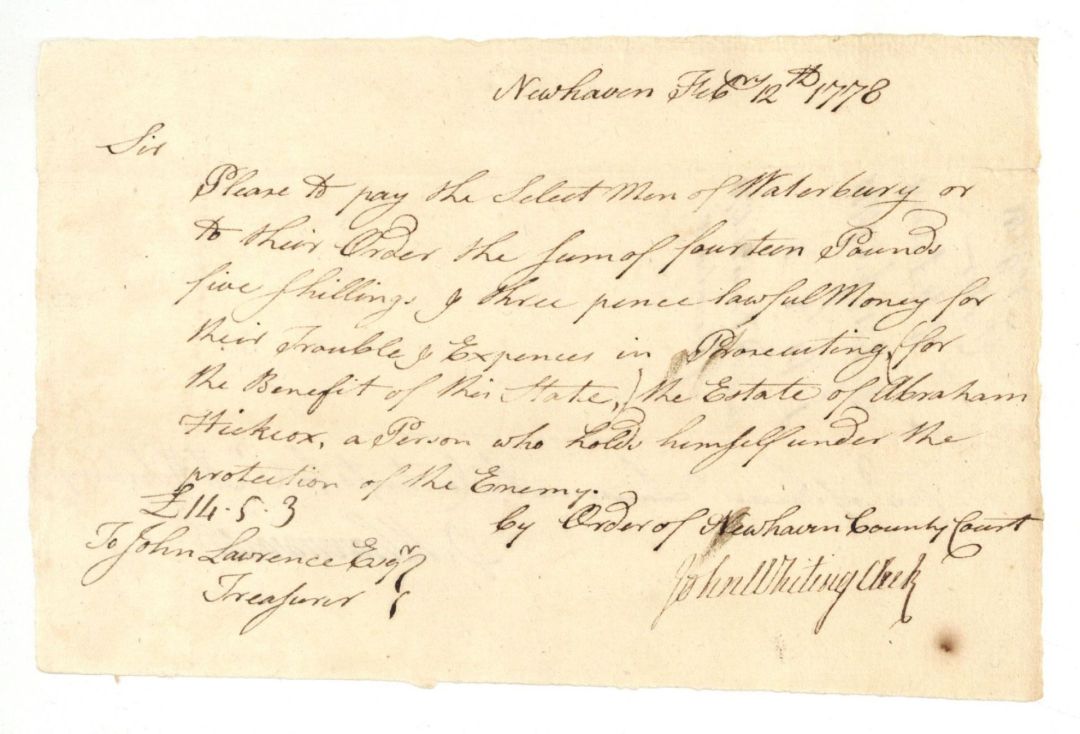 Newhaven Febry 12th 1778
Sir
Please to pay the Select Men of Waterbury or
to their Order the sum of fourteen Pounds
five shillings & three pence lawful Money for
their Trouble & Expences in Prosecuting (for
the Benefit of this State,) the Estate of Abraham
Hickcox, a Person who holds himself under the
protection of the Enemy.
£14.5.3
by Order of Newhaven County Court
To John Lawrence Esqr
Treasurer
John Whiting Clerk